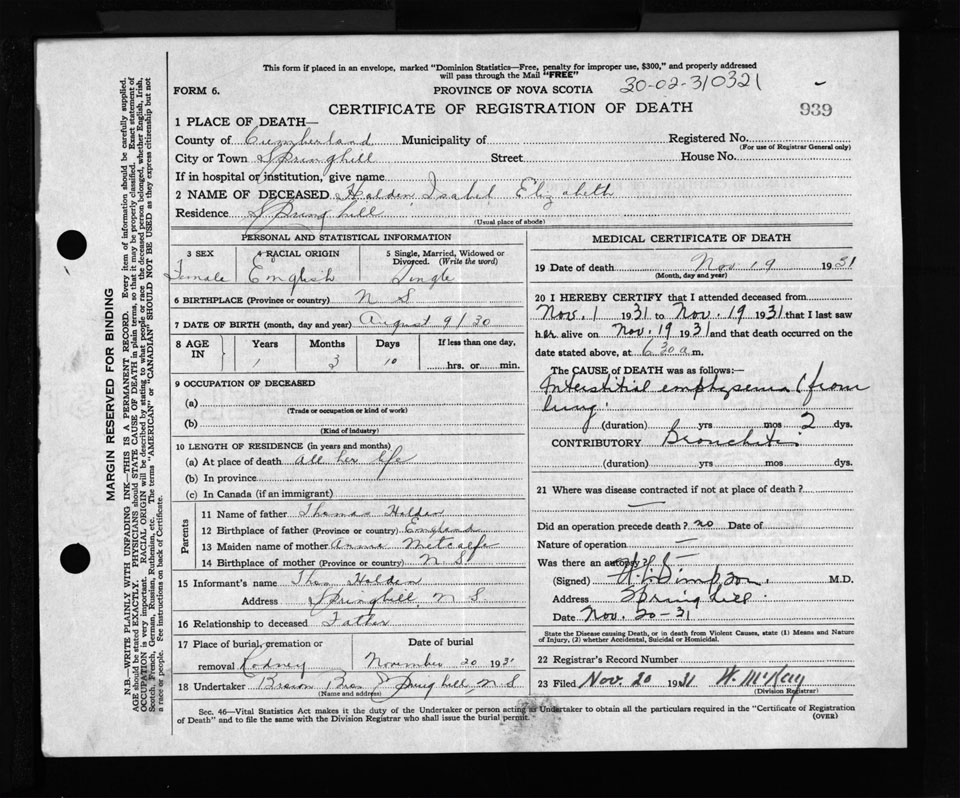 This form if placed in an envelope, marked "Dominion Statistics—Free, penalty for improper use, $300," and properly addressed
will pass through the Mail "FREE"
FORM 6. PROVINCE OF NOVA SCOTIA 30-02-310321
CERTIFICATE OF REGISTRATION OF DEATH 939
1 PLACE OF DEATH—
County of Cumberland Municipality of Registered No.
(For use of Registrar General only)
City or Town Springhill Street House No.
If in hospital or institution, give name
2 NAME OF DECEASED Holden Isabel Elizabeth
Residence Springhill
(Usual place of abode)
PERSONAL AND STATISTICAL INFORMATION
3 SEX 4 RACIAL ORIGIN 5 Single, Married, Widowed or
Divorced. (Write the word)
Female English Single
6 BIRTHPLACE (Province or country) N S
7 DATE OF BIRTH (month, day and year) August 9/30
8 AGE IN Years Months Days If less than one day,
1 3 10 hrs. or min.
9 OCCUPATION OF DECEASED
(a)
(Trade or occupation or kind of work)
(b)
(Kind of industry)
10 LENGTH OF RESIDENCE (in years and months)
(a) At place of death all her life
(b) In province
(c) In Canada (if an immigrant)
Parents
11 Name of father Thomas Holden
12 Birthplace of father (Province or country) England
13 Maiden name of mother Annie Metcalfe
14 Birthplace of mother (Province or country) N S
15 Informant's name Thos Holden
Address Springhill, N S
16 Relationship to deceased Father
17 Place of burial, cremation or Date of burial
removal Rodney November 20 1931
18 Undertaker Brown Bros Springhill N S
(Name and address)
MEDICAL CERTIFICATE OF DEATH
19 Date of death Nov 19 1931
(Month, day and year)
20 I HEREBY CERTIFY that I attended deceased from
Nov. 1 1931 to Nov. 19 1931 that I last saw
her alive on Nov. 19 1931 and that death occurred on
the date stated above, at 6.30 a m.
The CAUSE of DEATH was as follows:—
Interstitial emphysema (from
lung.
(duration) yrs mos 2 dys.
CONTRIBUTORY Bronchitis
(duration) yrs mos dys.
21 Where was disease contracted if not at place of death?
—
Did an operation precede death? no Date of
Nature of operation —
Was there an autopsy? —
(Signed) Simpson. M.D.
Address Springhill.
Date Nov. 20-31
State the Disease causing Death, or in death from Violent Causes, state (1) Means and Nature
of Injury, (2) whether Accidental, Suicidal or Homicidal.
22 Registrar's Record Number
23 Filed Nov. 20 1931 W. McKay
(Division Registrar)
Sec. 46—Vital Statistics Act makes it the duty of the Undertaker or person acting as Undertaker to obtain all the particulars required in the "Certificate of Registration
of Death" and to file the same with the Division Registrar who shall issue the burial permit. (OVER)
MARGIN RESERVED FOR BINDING
N.B.—WRITE PLAINLY WITH UNFADING INK—THIS IS A PERMANENT RECORD. Every item of information should be carefully supplied.
AGE should be stated EXACTLY. PHYSICIANS should STATE CAUSE OF DEATH in plain terms, so that it may be properly classified. Exact statement of
OCCUPATION is very important. RACIAL ORIGIN will be described by stating to what people or race the deceased person belonged, whether English, Irish,
Scotch, French, German, Russian, Ruthenian, etc. The terms "AMERICAN" or "CANADIAN" SHOULD NOT BE USED as they express citizenship but not
a race or people. See instructions on back of Certificate.